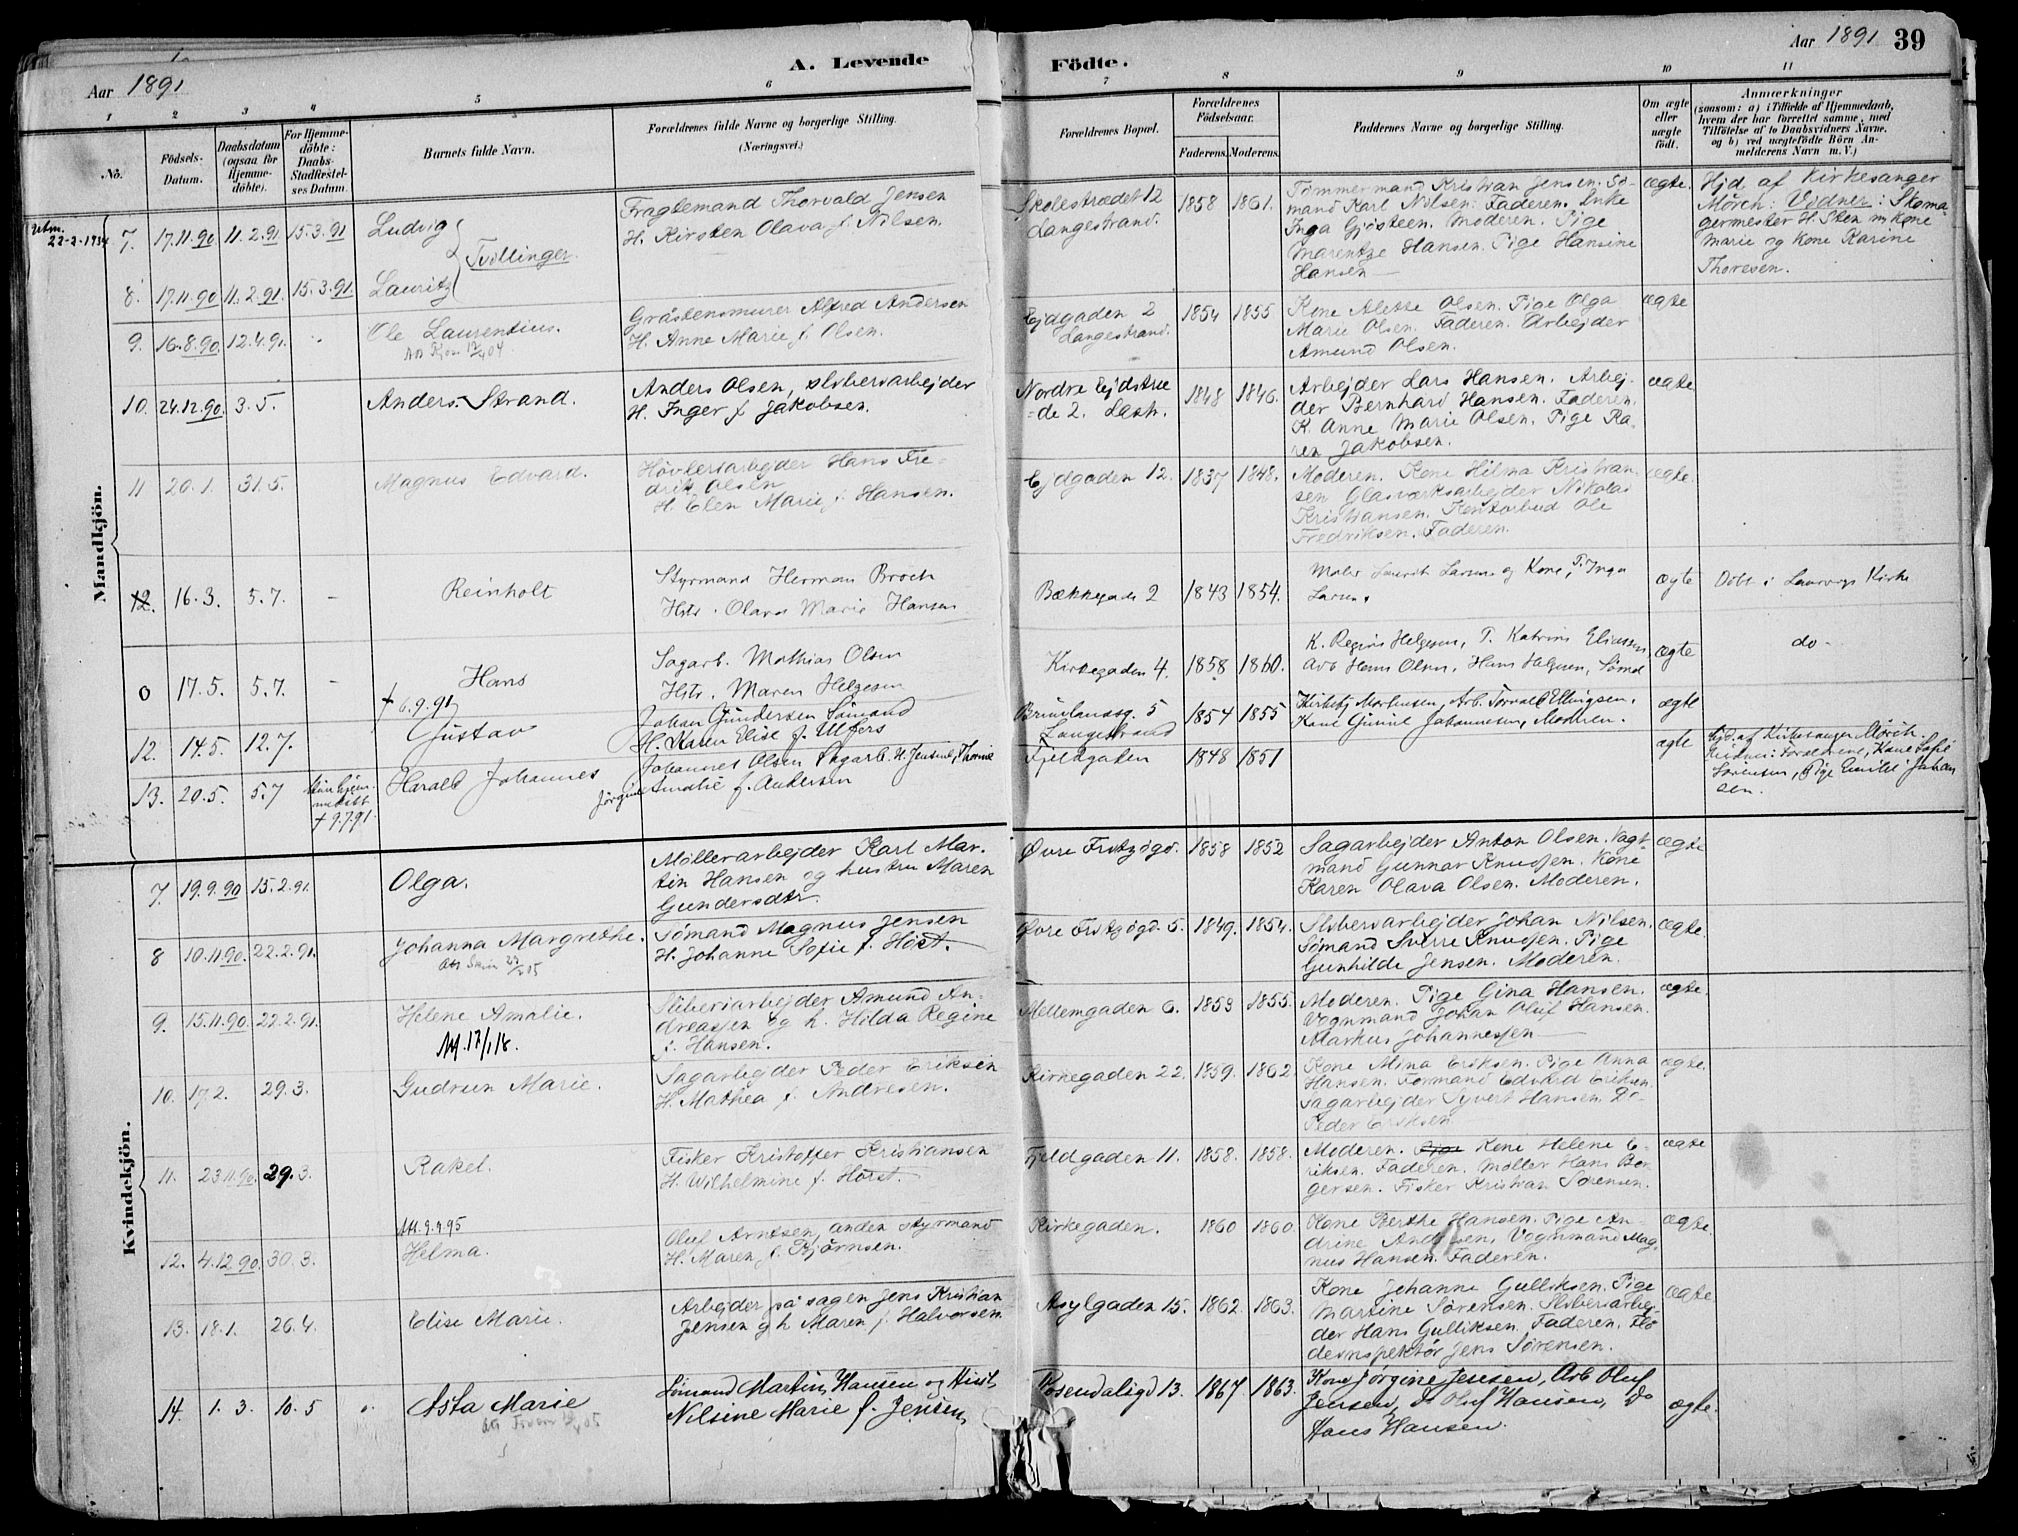 Aar 1891
A. Levende
Födte.
Aar 1891 39
1 2 3 4 5 6 7 8 9 10 11
No.
Födsels-Datum.
Daabsdatum (ogsaa for Hjemmedöbte).
For Hjemmedöbte: Daabs-Stadfæstelses Datum.
Barnets fulde Navn.
Forældrenes fulde Navne og borgerlige Stilling. (Næringsvei.)
Forældrenes Bopæl.
Forældrenes Födselsaar.
Faderens. Moderens.
Faddernes Navne og borgerlige Stilling.
Om ægte eller uægte födt.
Anmærkninger
(saasom: a) i Tilfælde af Hjemmedaab, hvem der har forrettet samme, med Tilföielse af to Daabsvidners Navne, og b) ved uægtefödte Börn Anmelderens Navn m. V.)
Mandkjön.
22-2-1934
7. 17.11.90 11.2.91 15.3.91 Ludvig
Tvillinger.
Fragtemand Thorvald Jensen
H. Kirsten Olava f. Nilsen.
Skolestrædet 12
Langestrand.
1858 1861.
Tømmermand Kristian Jensen. Sø-
mand Karl Nilsen. Faderen. Enke
Inga Gjøsteen. Moderen. Pige
Marentze Hansen. Pige Hansine
Hansen
ægte.
Hjd. af Kirkesanger
Mørch. Vidner: Skoma-
germester H. Sten m kone
Marie og Kone Karine
Thoresen.
8. 17.11.90 11.2.91. 15.3.91. Lauritz
9. 16.8.90. 12.4.91. Ole Laurentius.
Gråstensmurer Alfred Andersen
H. Anne Marie f. Olsen.
Ejdgaden 2
Langestrand.
1854 1855
Kone Alette Olsen. Pige Olga
Marie Olsen. Faderen. Arbejder
Amund Olsen.
ægte
10. 24.12.90. 3.5. Anders Strand.
Anders Olsen, sliberiarbejder
H. Inger f. Jakobsen.
Nordre Ejdstræ
=de 2. Lastr.
1848 1846.
Arbejder Lars Hansen. Arbej-
der Bernhard Hansen. Faderen.
K. Anne Marie Olsen. Pige Ka-
ren Jakobsen.
ægte
11 20.1. 31.5. Magnus Edvard.
Høvleriarbejder Hans Fre-
drik Olsen
H. Elen Marie f. Hansen.
Ejdgaden 12.
1837 1848.
Moderen. Kone Hilma Kristian
sen Glasværksarbejder Nikolai
Kristiansen. Kontorbud Ole
Fredriksen. Faderen.
ægte.
12. 16.3. 5.7. - Reinholt
Styrmand Herman Broch
Hstr. Olava Marie Hansen
Bækkegade 2
1843 1854.
Maler Laurits Larsen og Kone, P. Inga
Larsen
ægte
Døbt i Laurvigs Kirke
0 17.5. 5.7. - Hans
† 6.9.91
Sagarb. Mathias Olsen
Hstr. Maren Helgesen
Kirkegaden 4.
1858 1860.
K. Regine Helgesen, P. Katrine Eliassen
Arb Hans Olsen, Hans Helgesen, Sømd
ægte
do-
12. 14.5. 12.7. Gustav
Johan Gundersen Sømand
H. Karen Elise f. Ulfers
Langestrand
1854 1855
Kone Gunil Johannesen, Moderen.
ægte
13. 20.5. 5.7 † 9.7.91. Harald Johannes
Johannes Olsen Sagarb. H. Jensine Thomine
Amalie f. Andersen
Fjeldgaden
1848 1851
ægte
Hjd. af Kirkesanger Mørch.
Vidner: Forældrene, Kone Sofie
Sørensen, Pige Emilie Johan
sen.
Kvindekjön.
7. 19.9.90 15.2.91. Olga.
Møllerarbejder Karl Mar-
tin Hansen og hustru Maren
Gundersdtr.
Øvre Fritzøgd.
1858 1852
Sagarbejder Anton Olsen. Vagt-
mand Gunnar Knudsen. Kone
Karen Olava Olsen. Moderen.
ægte
8 10.11.90. 22.2.91. Johanna Margrethe.
Sømand Magnus Jensen
H. Johanne Sofie f. Høst.
Øvre Fritzøgd. 5.
1849. 1854.
Sliberiarbejder Johan Nilsen.
Sømand Sverre Knudsen. Pige
Gunhilde Jensen. Moderen.
ægte.
9. 15.11.90. 22.2.91. Helene Amalie.
Att. 17/1 18.
Sliberiarbejder Amund An-
dreassen og h. Hilda Regine
f. Hansen.
Mellemgaden 6.
1853 1855.
Moderen. Pige Gina Hansen.
Vognmand Johan Oluf Hansen.
Markus Johannessen
ægte.
10. 17.2. 29.3. Gudrun Marie.
Sagarbejder Peder Eriksen
H. Mathea f. Andresen.
Kirkegaden 22.
1859. 1862
Kone Mina Eriksen. Pige Anna
Hansen. Formand Edvard Eriksen.
Sagarbejder Syvert Hansen. Do
Peder Eriksen
ægte.
11. 23.11.90. 29.3. Rakel.
Fisker Kristoffer Kristiansen
H. Wilhelmine f. Horst.
Fjeldgaden 11.
1858. 1858.
Moderen. Kone Helene E-
riksen. Faderen. Møller Hans Ber-
gersen. Fisker Kristian Sørensen.
ægte
Att. 9.9.95
12. 4.12.90 30.3. Helma.
Oluf Arntsen, anden styrmand
H. Maren f. Bjørnsen.
Kirkegaden.
1860 1860
Kone Berthe Hansen. Pige An-
drine Andersen, Vognmand Mag-
nus Hansen. Faderen.
ægte.
13. 18.1. 26.4. Elise Marie.
Arbejder på sagen Jens Kristian
Jensen og h Maren f. Halvorsen
Asylgaden 15.
1862. 1863.
Kone Johanne Gulliksen. Pige
Martine Sørensen. Sliberiarbej-
der Hans Gulliksen. Faderen. Flø
deinspektør Jens Sørensen.
ægte
14. 1.3. 10.5 Asta Marie
Sømand Martin Hansen og Hust.
Nilsine Marie f. Jensen
Rosendalgd 13.
1867 1863.
Kone Jørgine Jensen, Arb Oluf
Jensen, Do Oluf Hansen, Do
Hans Hansen.
ægte.